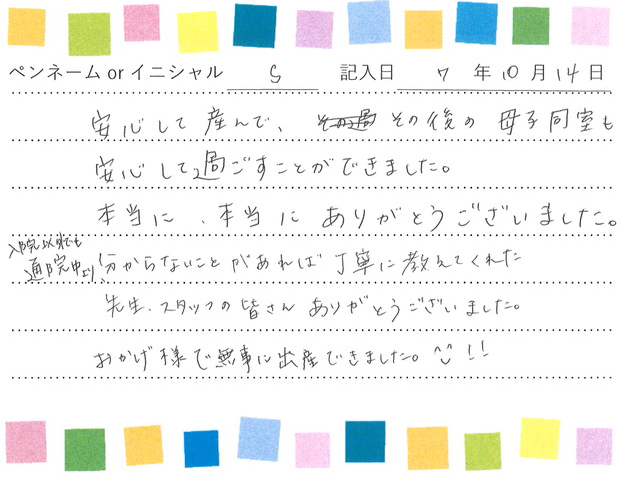 ペンネームorイニシャル S 記入日 7年10月14日
安心して産んで、その後の母子同室も
安心して過ごすことができました。
本当に、本当にありがとうございました。
入院以外でも
通院中より、分からないことがあれば丁寧に教えてくれた
先生、スタッフの皆さんありがとうございました。
おかげ様で無事に出産できました。^^!!